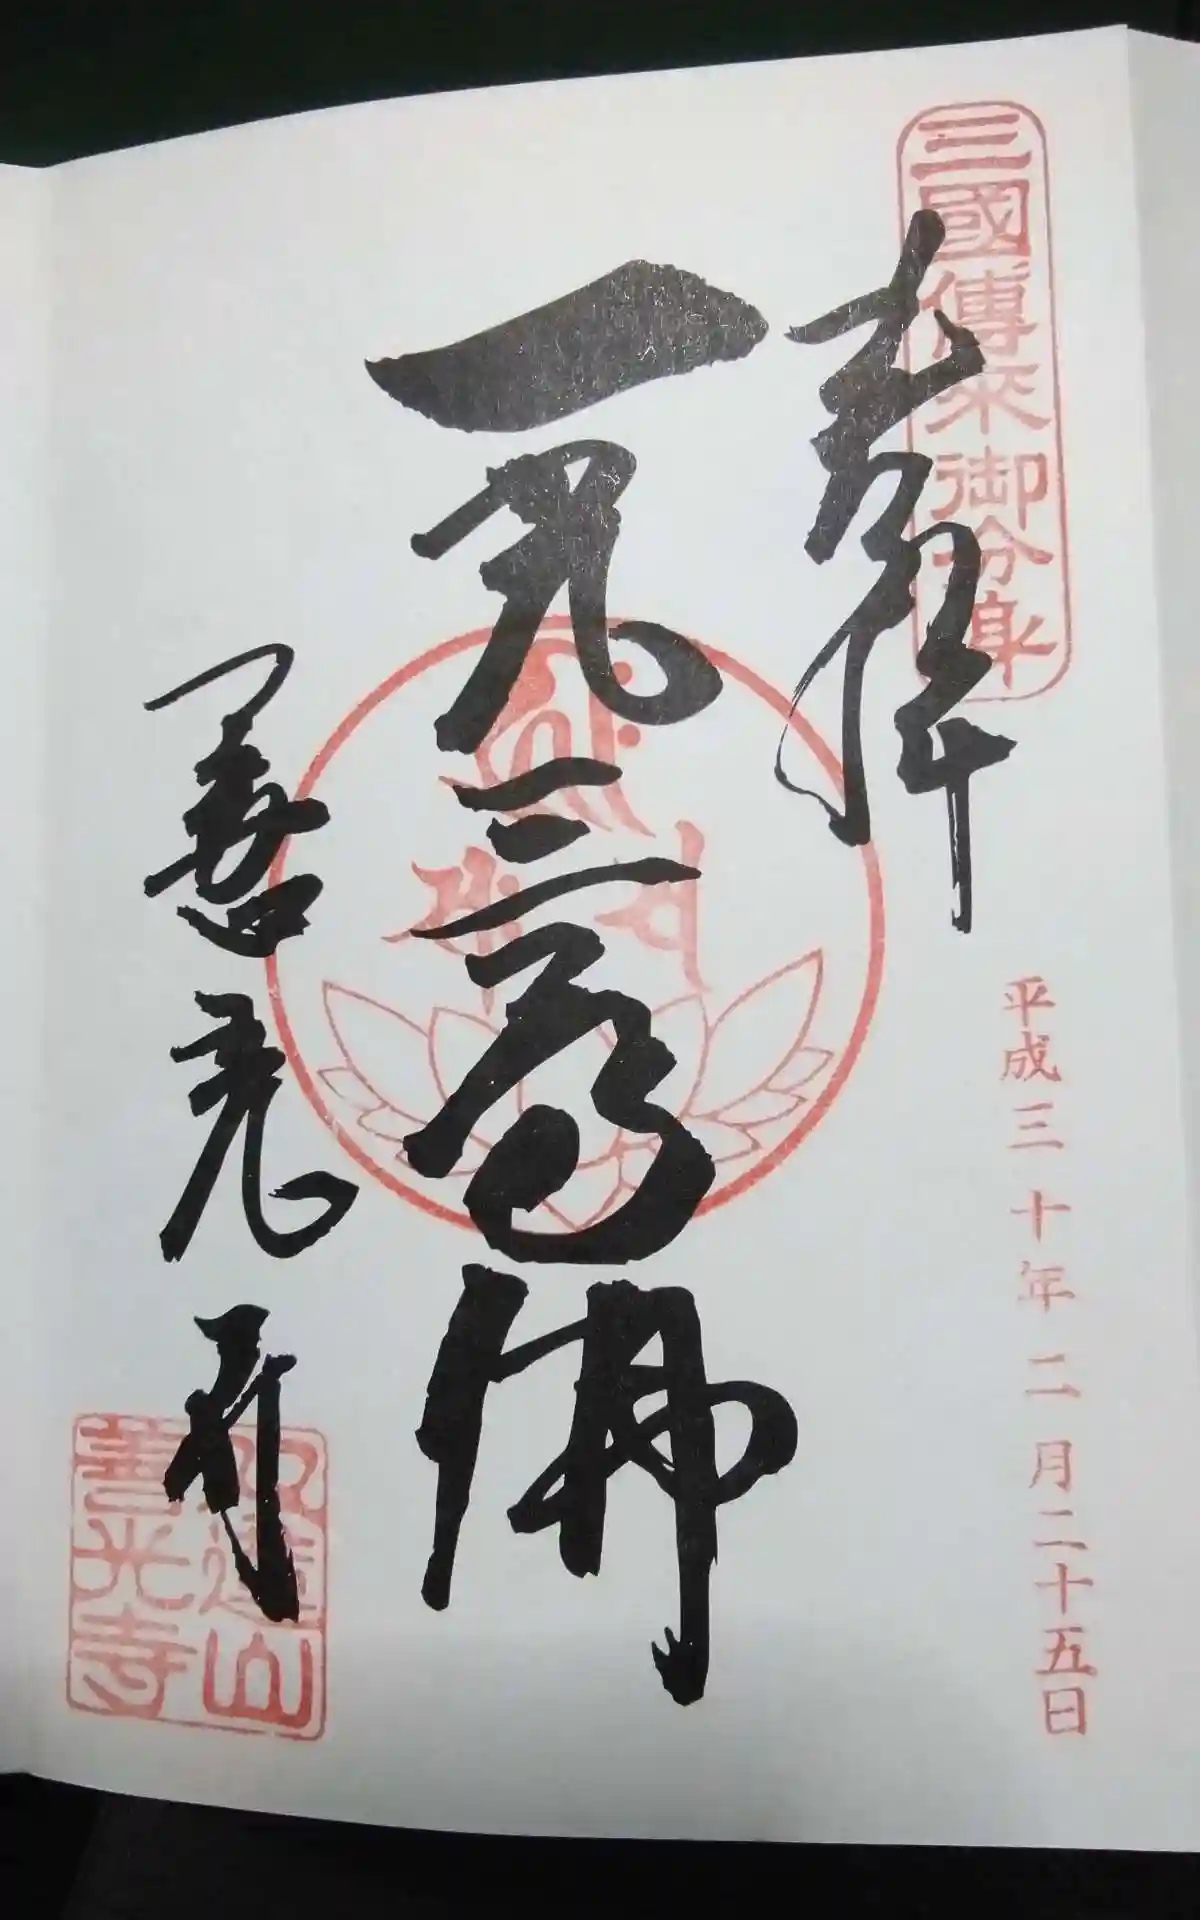 三國傳来御分身
奉拝
平成三十年二月二十五日
一光三尊佛
善光寺
双蓮山
善光寺